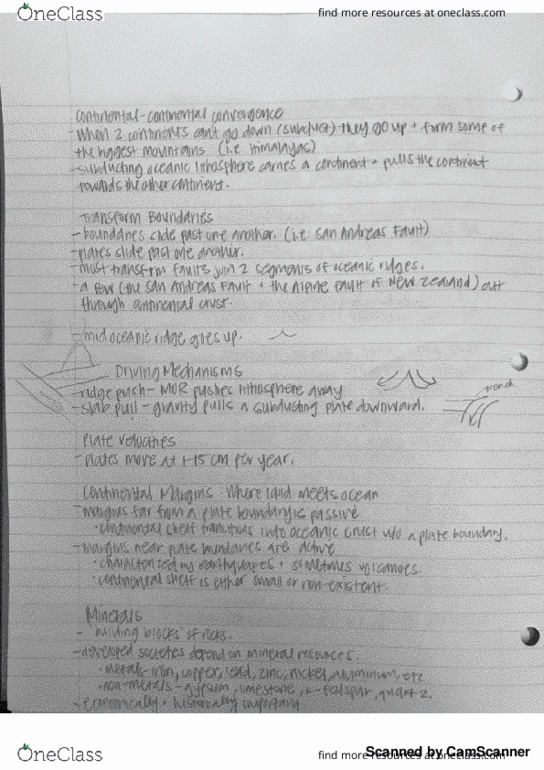 OneClass
find more resources at oneclass.com
continental-continental convergence
-when 2 continents can't go down (subduct) they go up + form some of
the biggest mountains (i.e. Himalayas)
-subducting oceanic lithosphere carries a continent + pulls the continent
towards the other continent.
Transform Boundaries
-boundaries slide past one another. (i.e. San Andreas Fault)
-plates slide past one another.
-most transform faults join 2 segments of oceanic ridges.
-a few (the San Andreas Fault + the Alpine fault of New Zealand) cut
through continental crust.
-mid oceanic ridge goes up.
Driving Mechanisms
-ridge push - MOR pushes lithosphere away
-slab pull - gravity pulls a subducting plate downward.
trench
Plate velocities
-plates move at 1-15 cm per year.
Continental Margins: where land meets ocean
-margins far from a plate boundary is passive
•continental shelf transitions into oceanic crust w/o a plate boundary.
-margins near plate boundaries are active
•characterized by earthquakes + sometimes volcanoes.
•continental shelf is either small or non-existent.
Minerals
-"building blocks" of rocks.
-developed societies depend on mineral resources.
•metals-iron, copper, lead, zinc, nickel, aluminum, etc
•non-metals - gypsum, limestone, k-feldspar, quartz.
-economically + historically important.
OneClass
find more resources at oneclass.com
Scanned by CamScanner